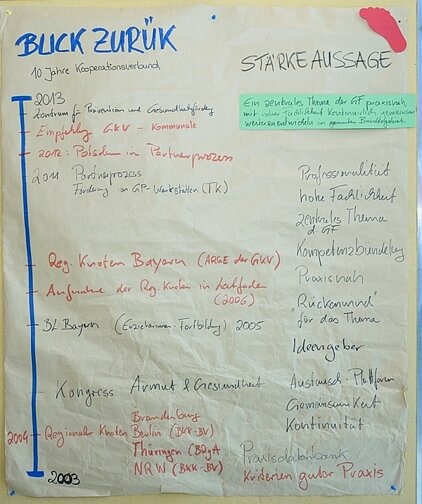 BLICK ZURÜK
10 Jahre Kooperationsverbund
2013
Zentrum für Prävention und Gesundheitsfördg
Empfehlg GKV - Kommunale
2012: Potsdam in Partnerprozess
2011 Partnerprozess
Förderung von GP-Werkstätten (TK)
Reg. Knoten Bayern (ARGE der GKV)
Aufnahme der Reg. Knoten in Leitfaden
(2006)
BL Bayern (Erzieherinnen-Fortbildung) 2005
Kongress Armut & Gesundheit
Brandenburg
2004 Regionaler Knoten Berlin (BKK-BV)
Thüringen (BZgA
NRW (BKK-BV)
2003
STÄRKE AUSSAGE
Ein zentrales Thema der GF praxisnah,
mit hoher Fachlichkeit kontinuierlich gemeinsam
weiterzuentwickeln im gesamten Bundesgebiet
Professionalität
hohe Fachlichkeit
zentrales Thema
d. GF
Kompetenzbündelung
Praxisnah
"Rückenwind"
für das Thema
Ideengeber
Austausch-Plattform
Gemeinsamkeit
Kontinuität
Praxisdatenbank
Kriterien guter Praxis